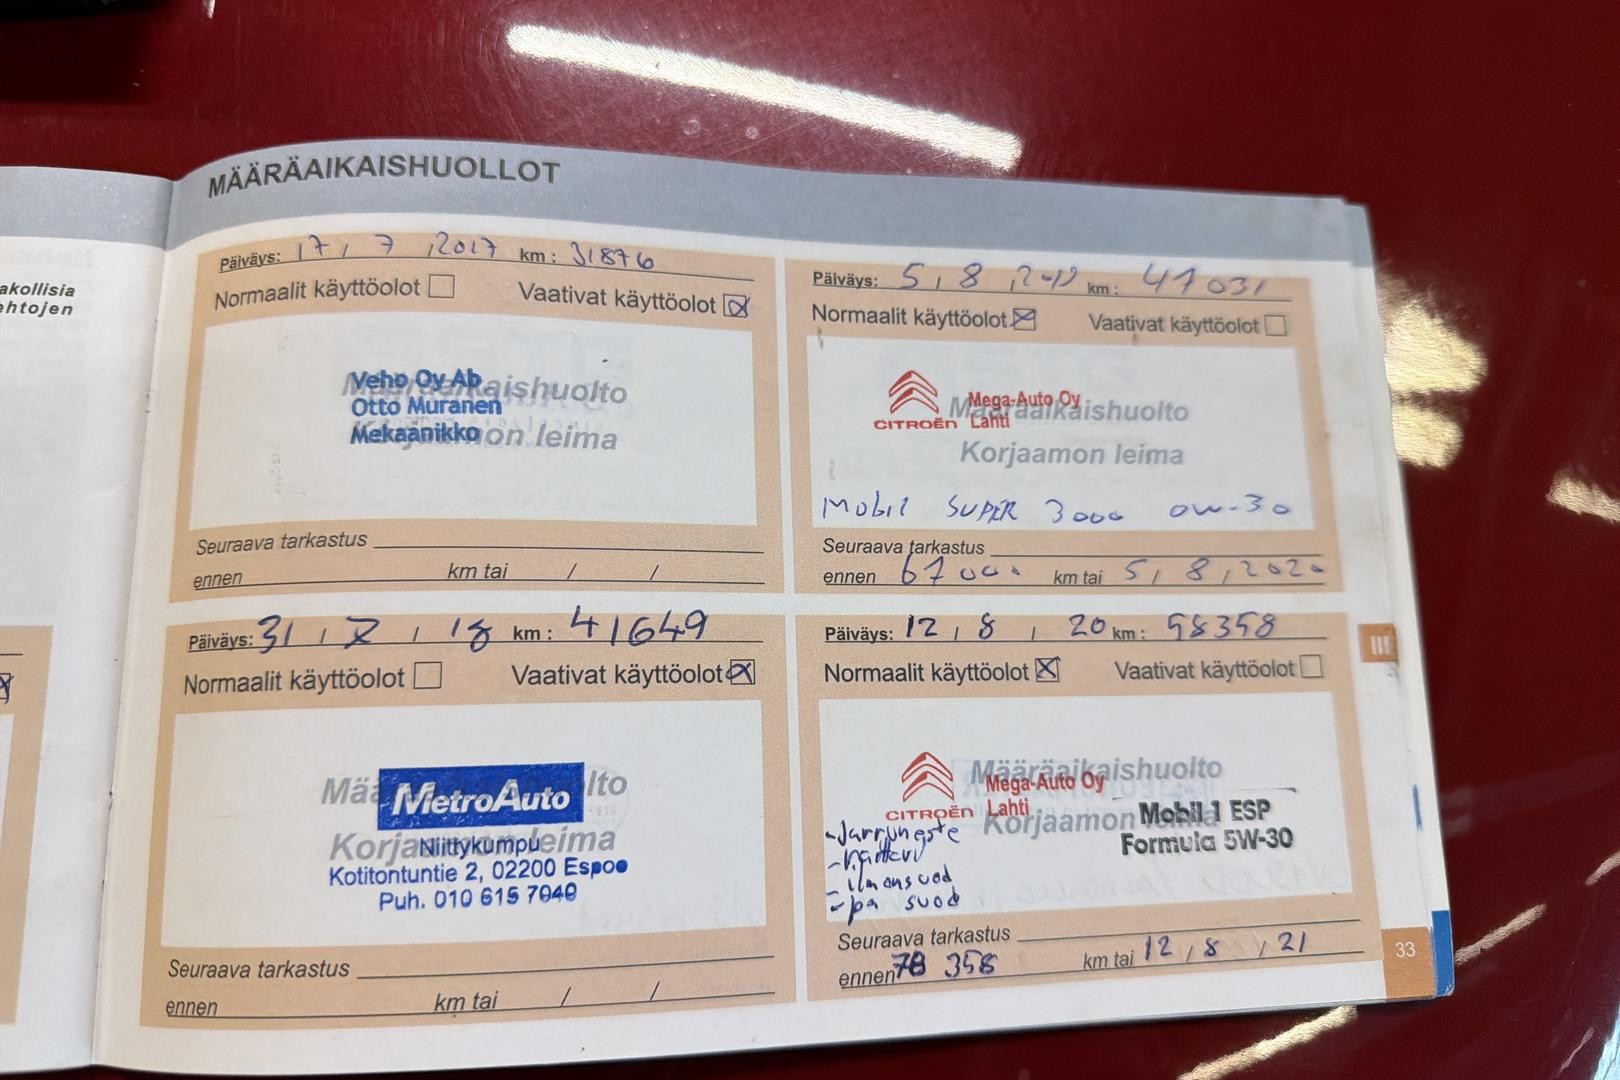 akollisia
ehtojen
MÄÄRÄAIKAISHUOLLOT
Päiväys: 17 / 7 / 2017 km: 31876
Normaalit käyttöolot Vaativat käyttöolot
Määräaikaishuolto
Korjaamon leima
Veho Oy Ab
Otto Muranen
Mekaanikko
Seuraava tarkastus
ennen km tai / /
Päiväys: 31 / 7 / 18 km: 41649
Normaalit käyttöolot Vaativat käyttöolot
Määräaikaishuolto
Korjaamon leima
MetroAuto
Niittykumpu
Kotitontuntie 2, 02200 Espoo
Puh. 010 615 7040
Seuraava tarkastus
ennen km tai / /
Päiväys: 5 / 8 / km: 47031
Normaalit käyttöolot Vaativat käyttöolot
Määräaikaishuolto
Korjaamon leima
CITROËN
Mega-Auto Oy
Lahti
Mobil SUPER 3000 0W-30
Seuraava tarkastus
ennen 67000 km tai 5 / 8 / 2020
Päiväys: 12 / 8 / 20 km: 58358
Normaalit käyttöolot Vaativat käyttöolot
Määräaikaishuolto
Korjaamon leima
CITROËN
Mega-Auto Oy
Lahti
Mobil 1 ESP
Formula 5W-30
- Jarruneste
- raitisu
- ilmansuod
- pa suod
Seuraava tarkastus
ennen 78 358 km tai 12 / 8 / 21
III
33